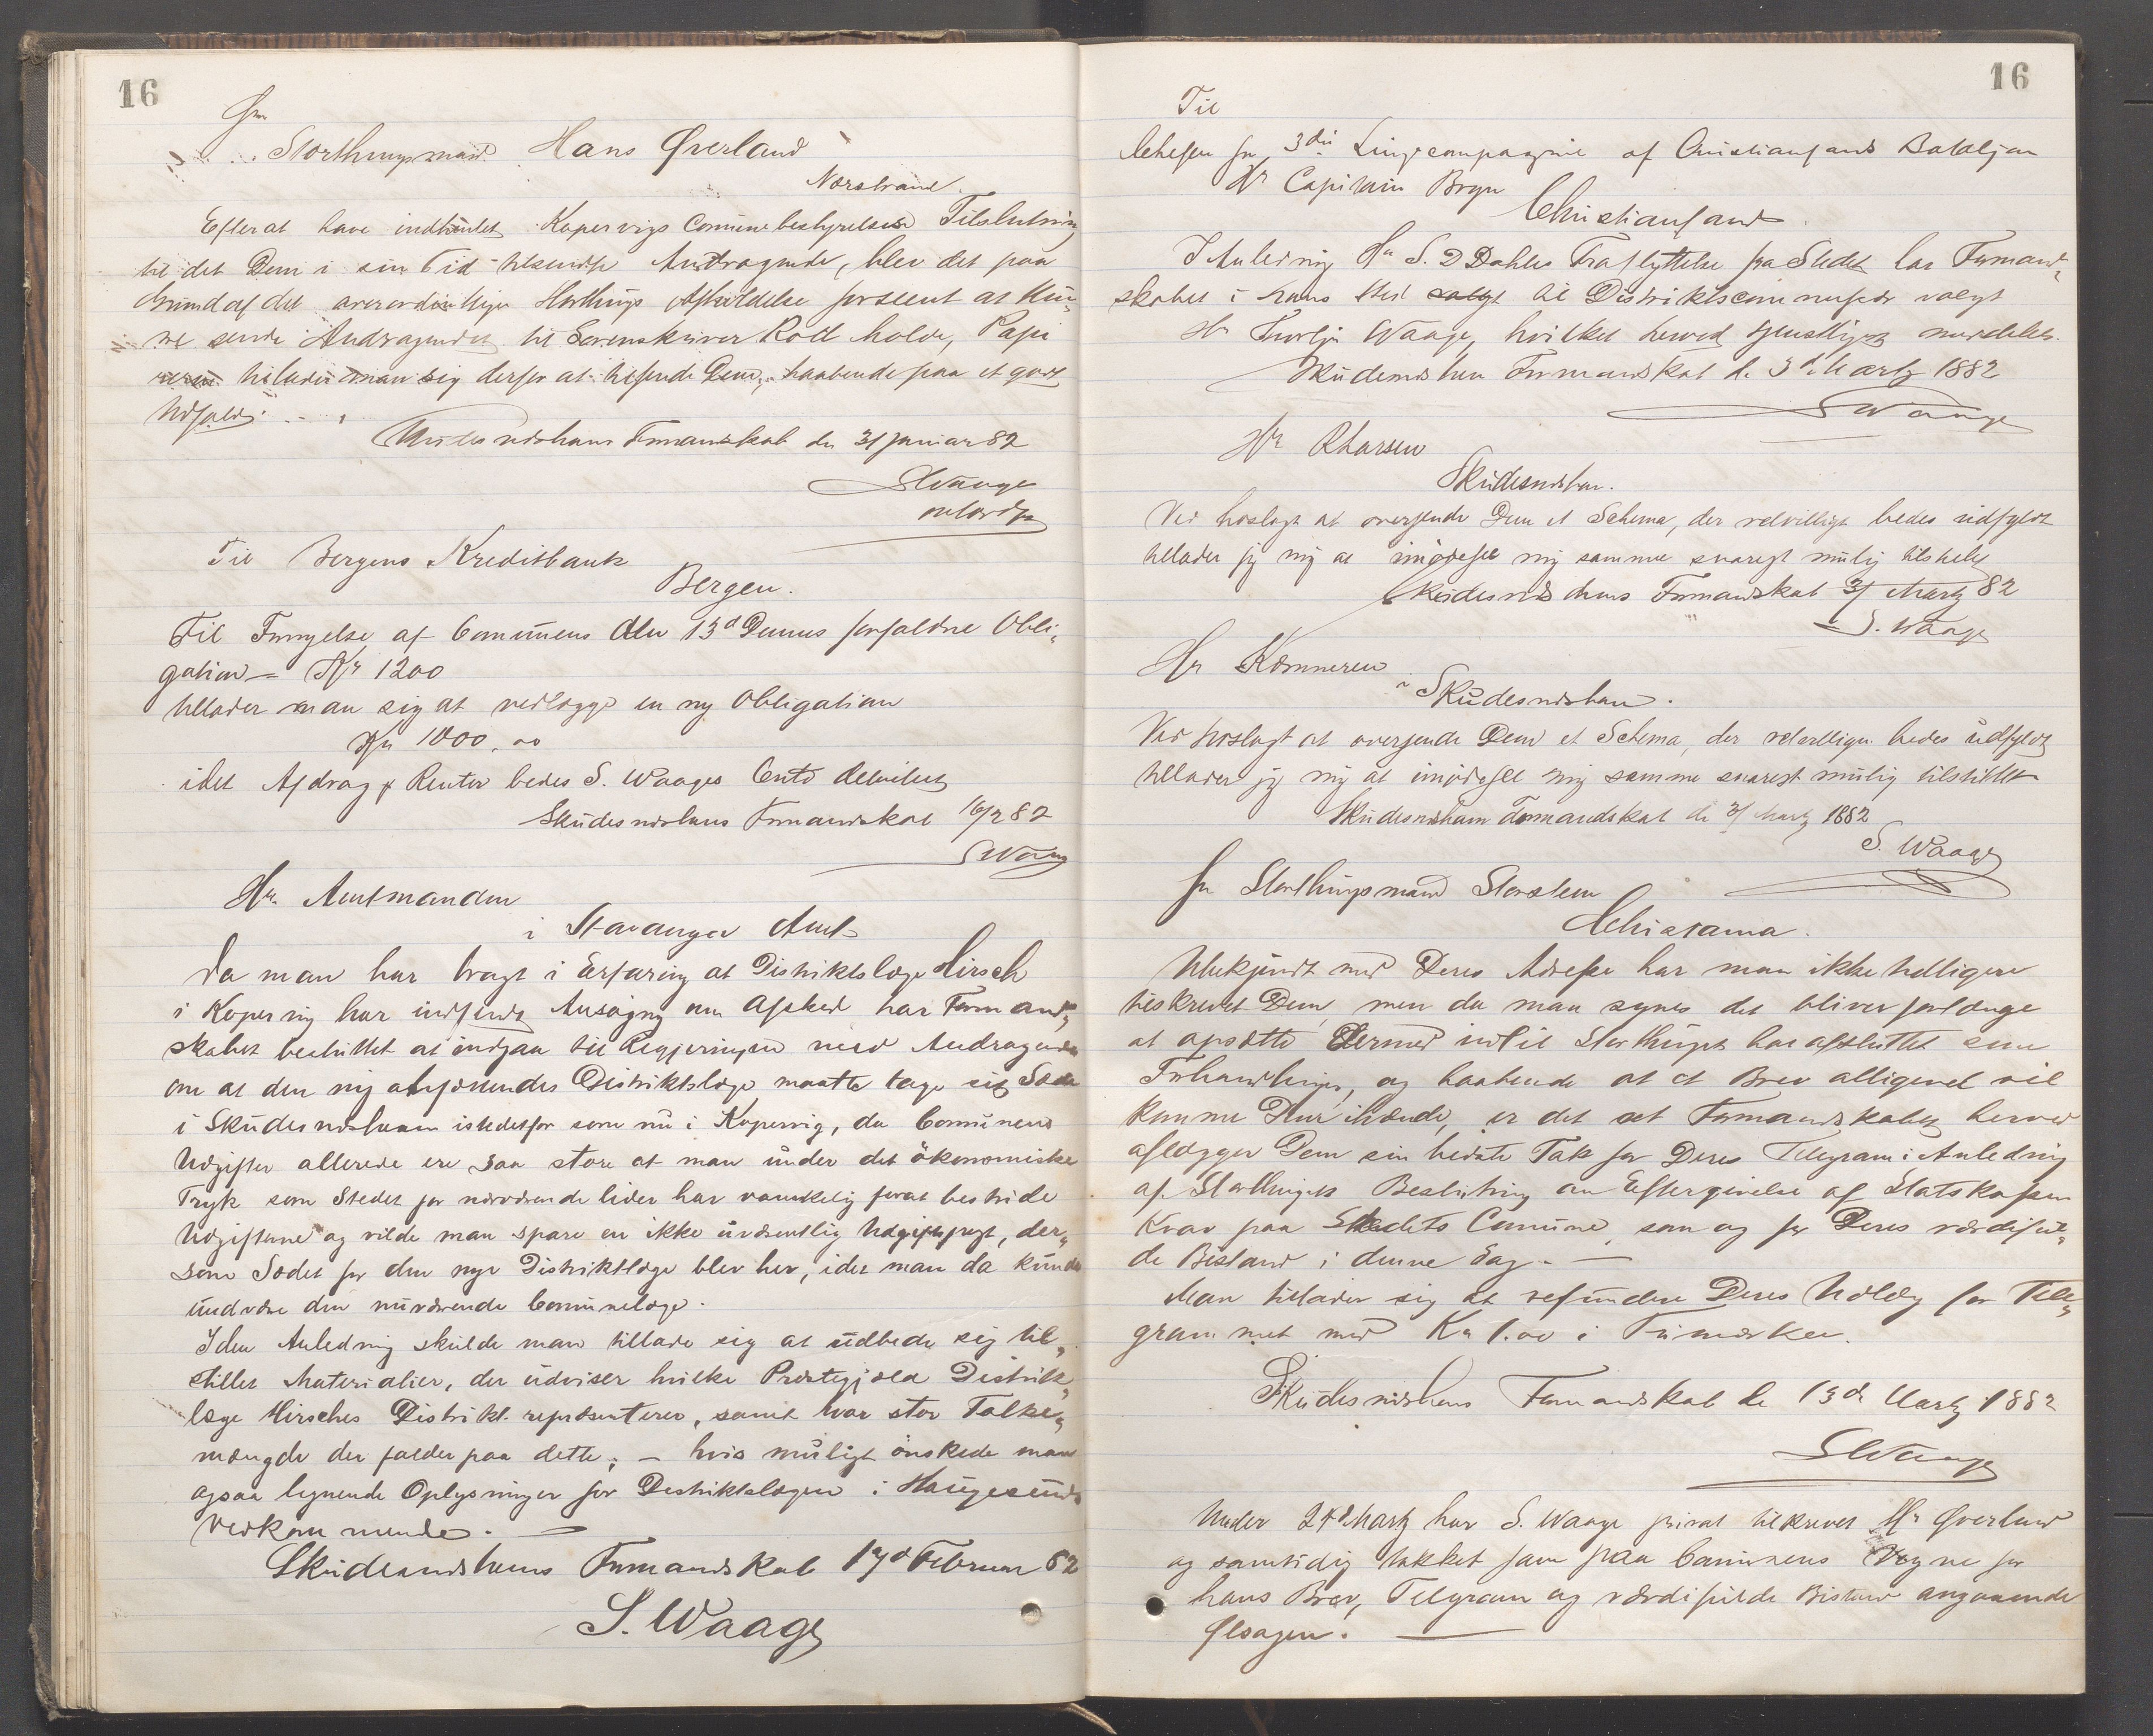 16
Hr
Storthingsmand Hans Qverland
Nærstrand.
Efterat have indhentet Kopervigs Comunebestyrelses Tilslutning
til det Dem i sin Tid tilsendte Andragende, blev det paa
Grund af det overordentlige Storthings Afholdelse forseent at kun,
ne sende Andragendet til Sorenskriver Koll
tillader man sig derfor at tilsende Dem, haabende paa et godt
Udfald.
Skudesneshavns Formandskab den 31 Januar 82
S Waage
ordfør
Til Bergens Kreditbank
Bergen.
Til Fornyelse af Comunens den 13d Dennes forfaldne Obli,
gation — Kr 1200
tillader man sig at vedlægge en ny Obligation
Kr 1000.00
idet Afdrag & Renter bedes S. Waages Conto debiteret
Skudesneshavns Formandskab 10/2 82
S Waage
Hr. Amtmanden
i Stavanger Amt
Da man har bragt i Erfaring at Distriktslæge Hirsch
i Kopervig har indsendt Ansøgning om Afsked har Formand,
skabet besluttet at indgaa til Regjeringen med Andragende
om at den nye ansættendes Distriktslæge maatte tage sit Sæde
i Skudesneshavn istedetfor som nu i Kopervig, da Comunens
Udgifter allerede ere saa store at man under det økonomiske
Tryk som Stedet for nærværende lider har vanskelig forat bestride
Udgifterne og vilde man spare en ikke uvæsentlig Udgiftspost, der,
som Sædet for den nye Distriktslæge blev her, idet man da kunde
undvære den nuværende Comunelæge.
I den Anledning skulde man tillade sig at udbede sig til,
stillet Materialier, der udviser hvilke Præstegjæld Distrikts,
læge Hirsches Distrikt repræsenterer, samt hvor stor Folke,
mængde der falder paa dette; — hvis muligt ønskede man
ogsaa lignende Oplysninger for Distriktslægen i Haugesund
vedkommende. —
Skudesneshavns Formandskab 17d Februar 82
S. Waage
16
Til
Chefen for 3die Liniecompagnie af Christiansands Bataljon
Hr Capitain Bryn
Christiansand.
I Anledning Hr S. D Dahles Fraflyttelse fra Stedet har Formand,
skabet i hans Sted valgt til Distriktscommissær valgt
Hr Thorbjn Waage, hvilket herved tjenstligst meddeles.
Skudesneshavn Formandskab d. 3d Martz 1882
S Waage
Hr R Larsen
Skudesneshavn.
Ved hoslagt at oversende Dem et Schema, der velvilligst bedes udfyldt
tillader jeg mig at imødese mig samme snarest mulig tilstillet
Skudesneshavns Formandskab 3/ Martz 82
S. Waage
Hr Kæmneren
i Skudesneshavn.
Ved hoslagt at oversende Dem et Schema, der velvilligen bedes udfyldt
tillader jeg mig at imødese mig samme snarest mulig tilstillet
Skudesneshavn Formandskab de 3/ Martz 1882
S. Waage
Hr Storthingsmand Storsteen
Christiania.
Ubekjendt med Deres Adresse har man ikke tidligere
tilskrevet Dem, men da man synes det bliver forlænge
at opsætte dermed indtil Storthinget har afsluttet sine
Forhandlinger, og haabende at et Brev alligevel vil
komme Dem ihænde, er det at Formandskabet herved
aflægger Dem sin bedste Tak for Deres Telegram i Anledning
af Storthingets Beslutning om Eftergivelse af Statskassen
Krav paa Stedets Comune, som og for Deres værdiful,
de Bistand i denne Sag. —
Man tillader sig at refundere Deres Udlæg for Tele,
grammet med Kr 1.00 i Frimærker.
Skudesneshavns Formandskab de 13de Martz 1882
S Waage
Under 24d Martz har S. Waage privat tilskrevet Hr Qverland
og samtidig takket ham paa Comunens Vegne for
hans Brev, Telegram og værdifulde Bistand angaaende
.